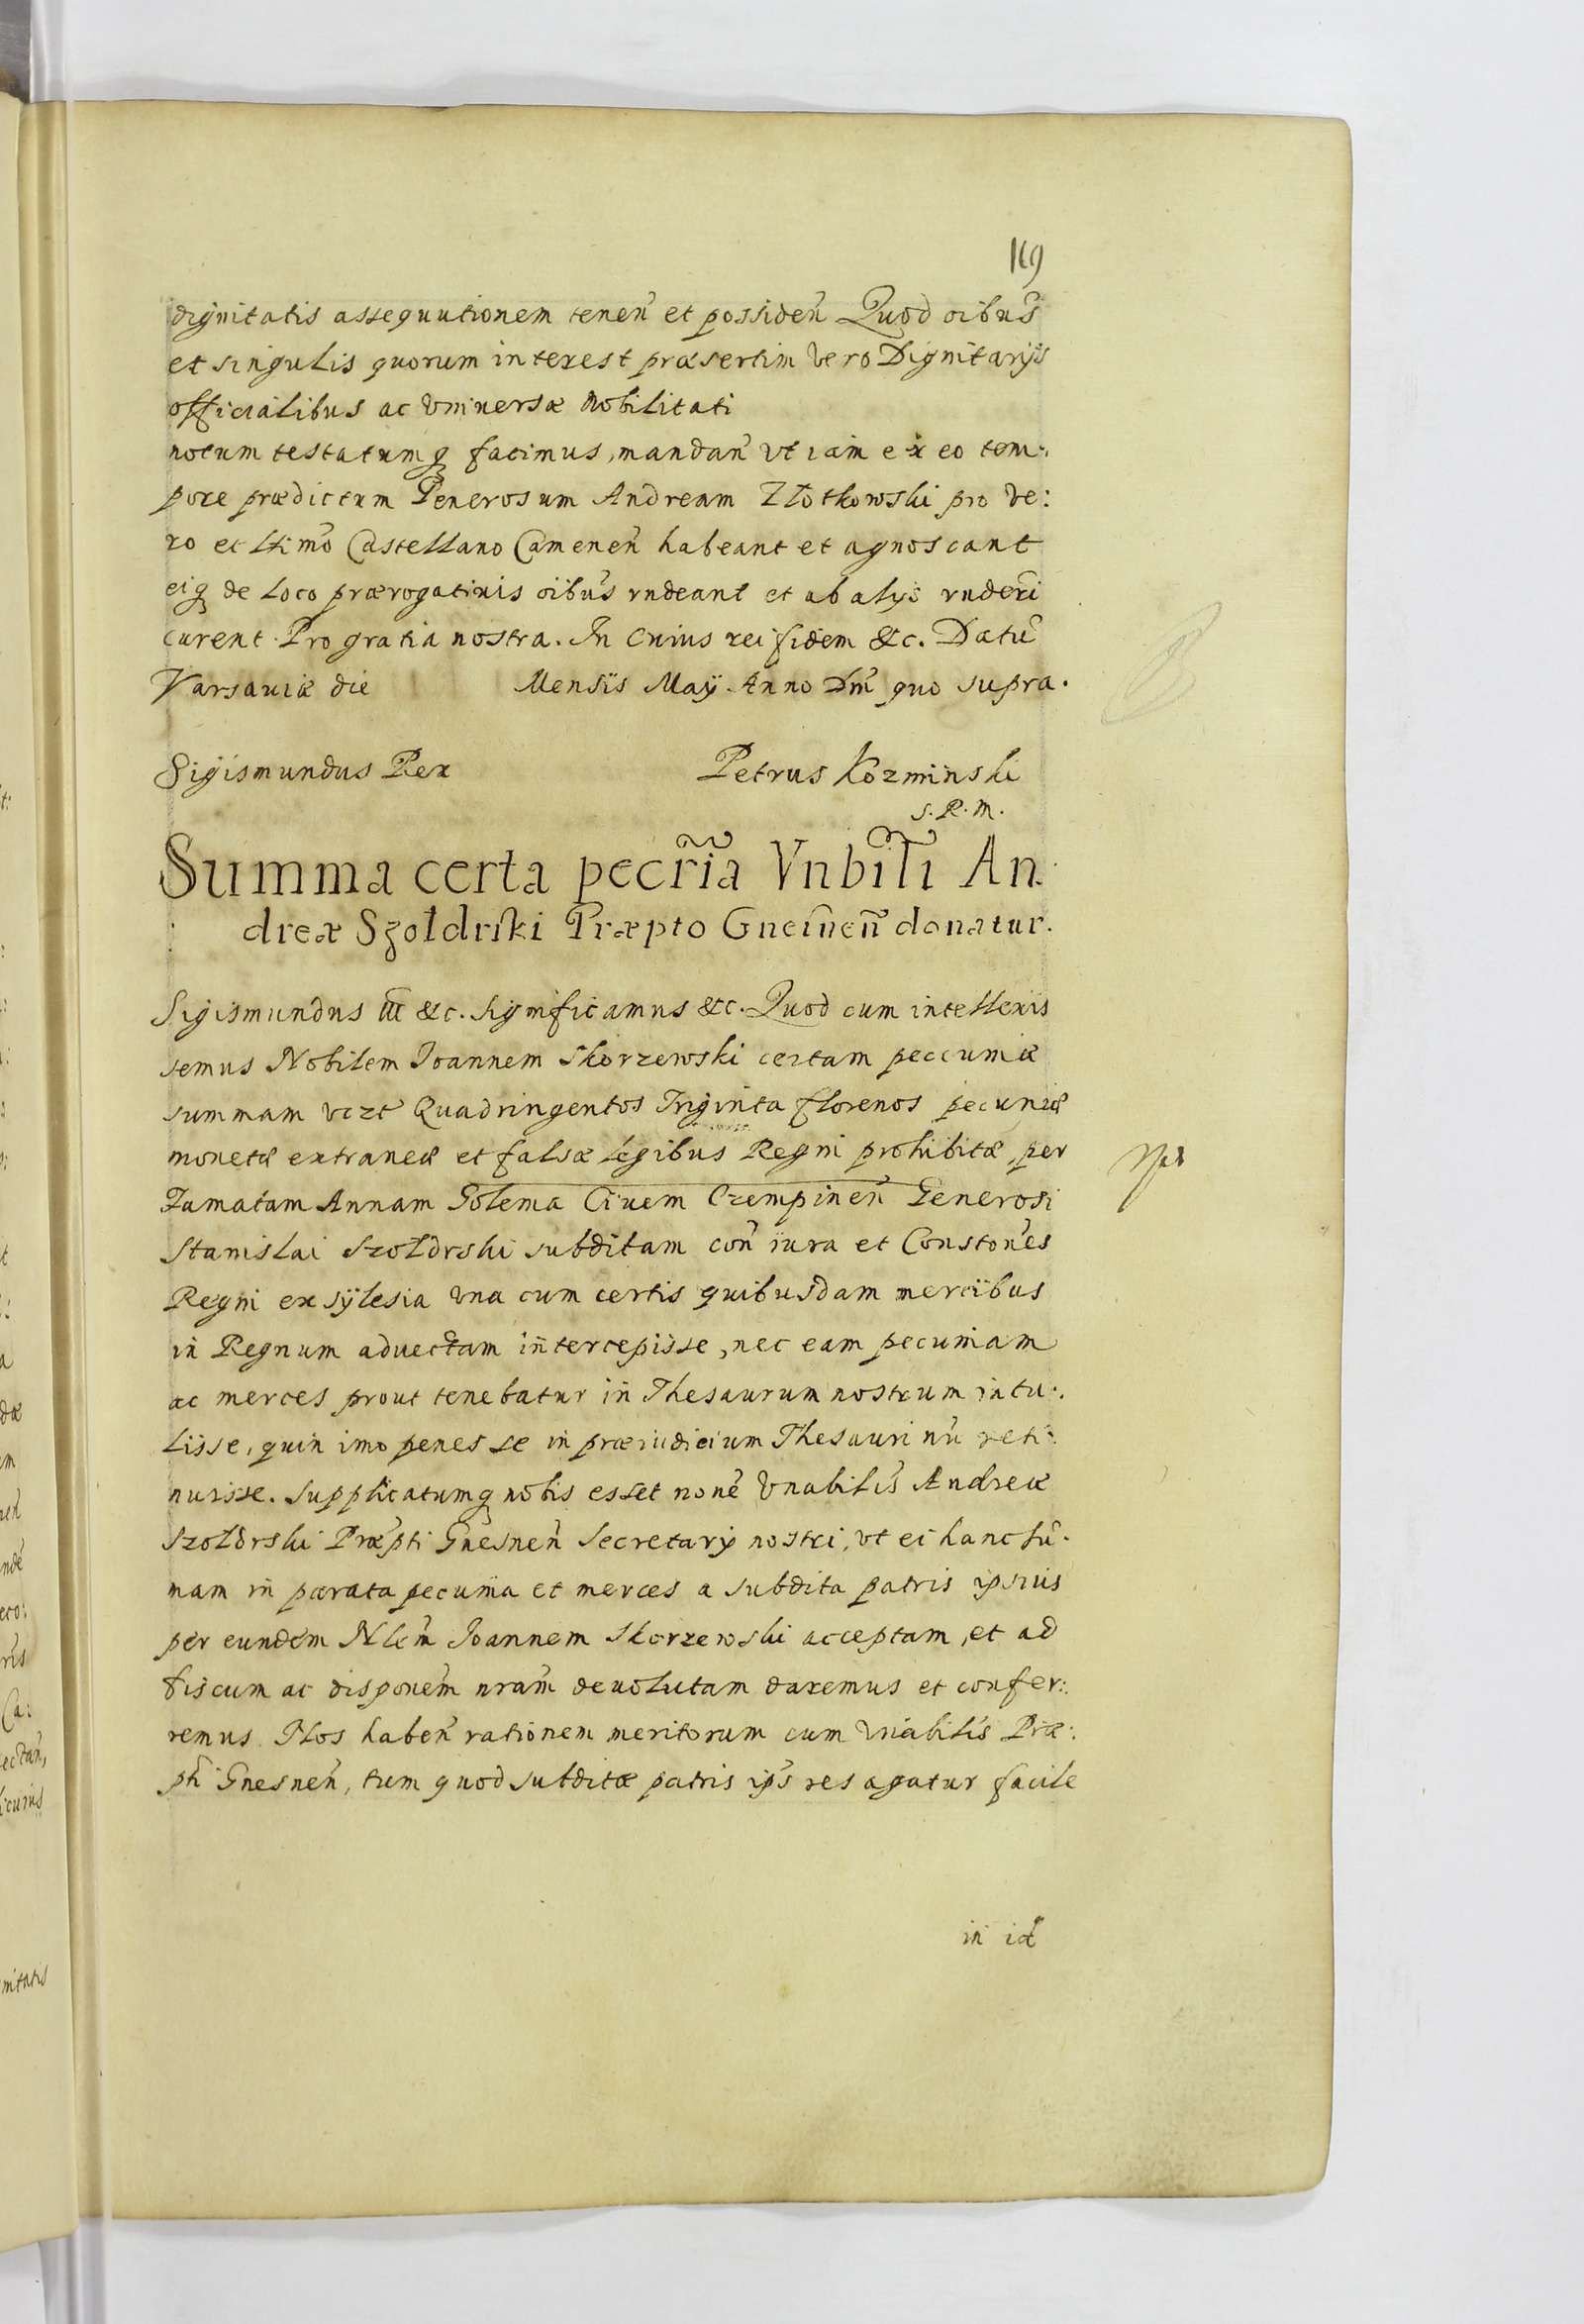 169
dignitatis assequutionem tenen̄ et possiden̄ Quod oibus̄
et singulis quorum interest præsertim vero Dignitarijs
officialibus ac vniuersæ Nobilitati
notum testatumq facimus, mandan̄ vt iam ex eo tem:
pore prædictum Generosum Andream Złotkowski pro ve:
ro et ltimo Castellano Camenen̄ habeant et agnoscant
eiq de loco prærogatiuis oibus̄ rndeant et ab alijs rnderi
curent Pro gratia nostra. In cuius rei fidem &c. Datū
Varsauiæ die Mensis Maij Anno Dm̄ quo supra.
Sigismundus Rex Petrus Kozminski
S.R.M.
Summa certa pecr̃ia Vnbili An
dreæ Szoldrski Præpto Gneinen̄ donatur.
Sigismundus III &c. Significamus &c. Quod cum intellexis
semus Nobilem Joannem Skorzewski certam peccuniæ
summam vizt Quadringentos Triginta florenos pecuniæ
monetæ extraneæ et falsæ legibus Regni prohibitæ, per
Famatam Annam Golema Ciuem Czempinen̄ Generosi
Stanislai Szołdrski subditam con̄ iura et Constones̄
Regni ex sylesia vna cum certis quibusdam mercibus
in Regnum aduectam intercepisse, nec eam pecuniam
ac merces prout tenebatur in Thesaurum nostrum intu:
lisse, quin imo penes se in præiudicium Thesauri nri reti:
nuisse. Supplicatumq nobis esset noné Vnabilis̄ Andreæ
Szołdrski Præpti Gnesnen̄ Secretarij nostri, vt ei hanc sū.
mam in parata pecunia et merces a subdita patris ipsius
per eundem Nlem̄ Joannem Skorzewski acceptam, et ad
fiscum ac disponem̄ nram̄ deuolutam daremus et confer:
remus. Nos haben̄ rationem meritorum cum Vnabilis Præ:
pti Gnesnen̄, tum quod subditæ patris ips̄ res agatur facile
in id